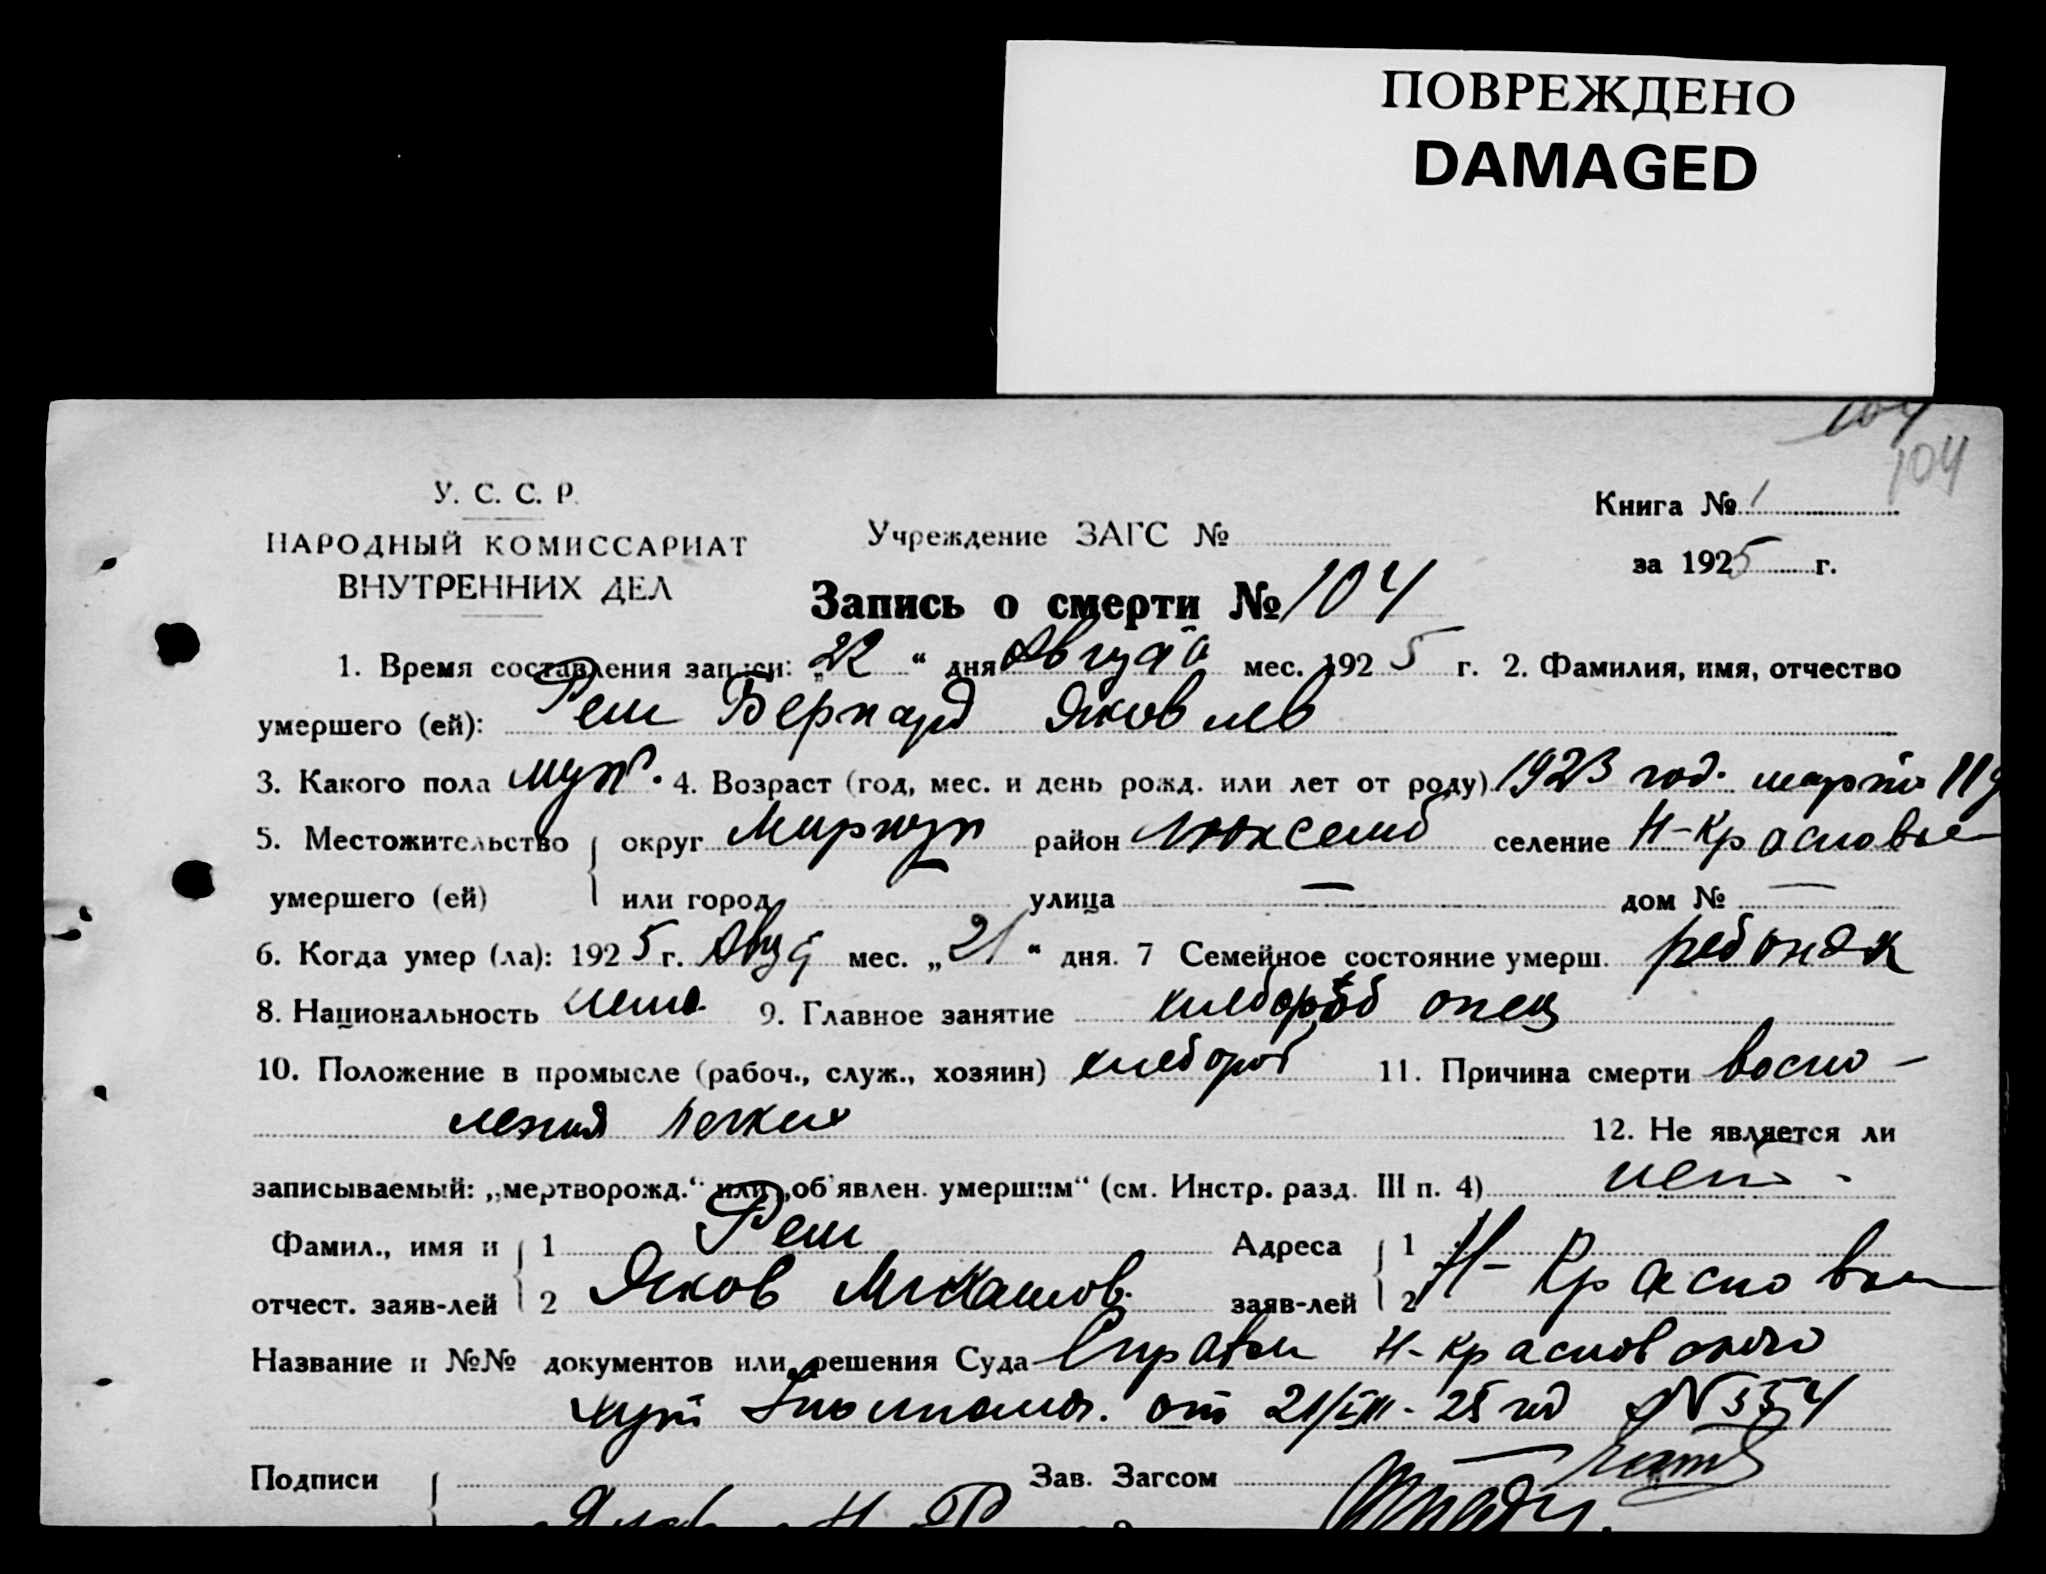 ПОВРЕЖДЕНО
DAMAGED
104
104
У. С. С. Р.
НАРОДНЫЙ КОМИССАРИАТ
ВНУТРЕННИХ ДЕЛ
Учреждение ЗАГС №
Книга № 1
за 1925 г.
Запись о смерти № 104
1. Время составления записи: „22“ дня Августа мес. 1925 г. 2. Фамилия, имя, отчество
умершего (ей): Реш Бернард Яковлев
3. Какого пола муж. 4. Возраст (год, мес. и день рожд. или лет от роду) 1923 год. марта 11 д
5. Местожительство округ район селение Н-Красновка
умершего (ей) или город улица — дом № —
6. Когда умер (ла): 1925 г. Авг мес. „21“ дня. 7 Семейное состояние умерш. ребонок
8. Национальность немец 9. Главное занятие хлебороб отец
10. Положение в промысле (рабоч., служ., хозяин) хлебороб 11. Причина смерти воспо-
ления легких
12. Не является ли
записываемый: „мертворожд.“ или „об'явлен. умершим“ (см. Инстр. разд. III п. 4) нет -
Фамил., имя и 1 Реш Адреса 1 Н-Красновка
отчест. заяв-лей 2 Яков заяв-лей 2
Название и №№ документов или решения Суда Справки Н-Красновского
хут от 21/VIII-25 год №554
Подписи Зав. Загсом